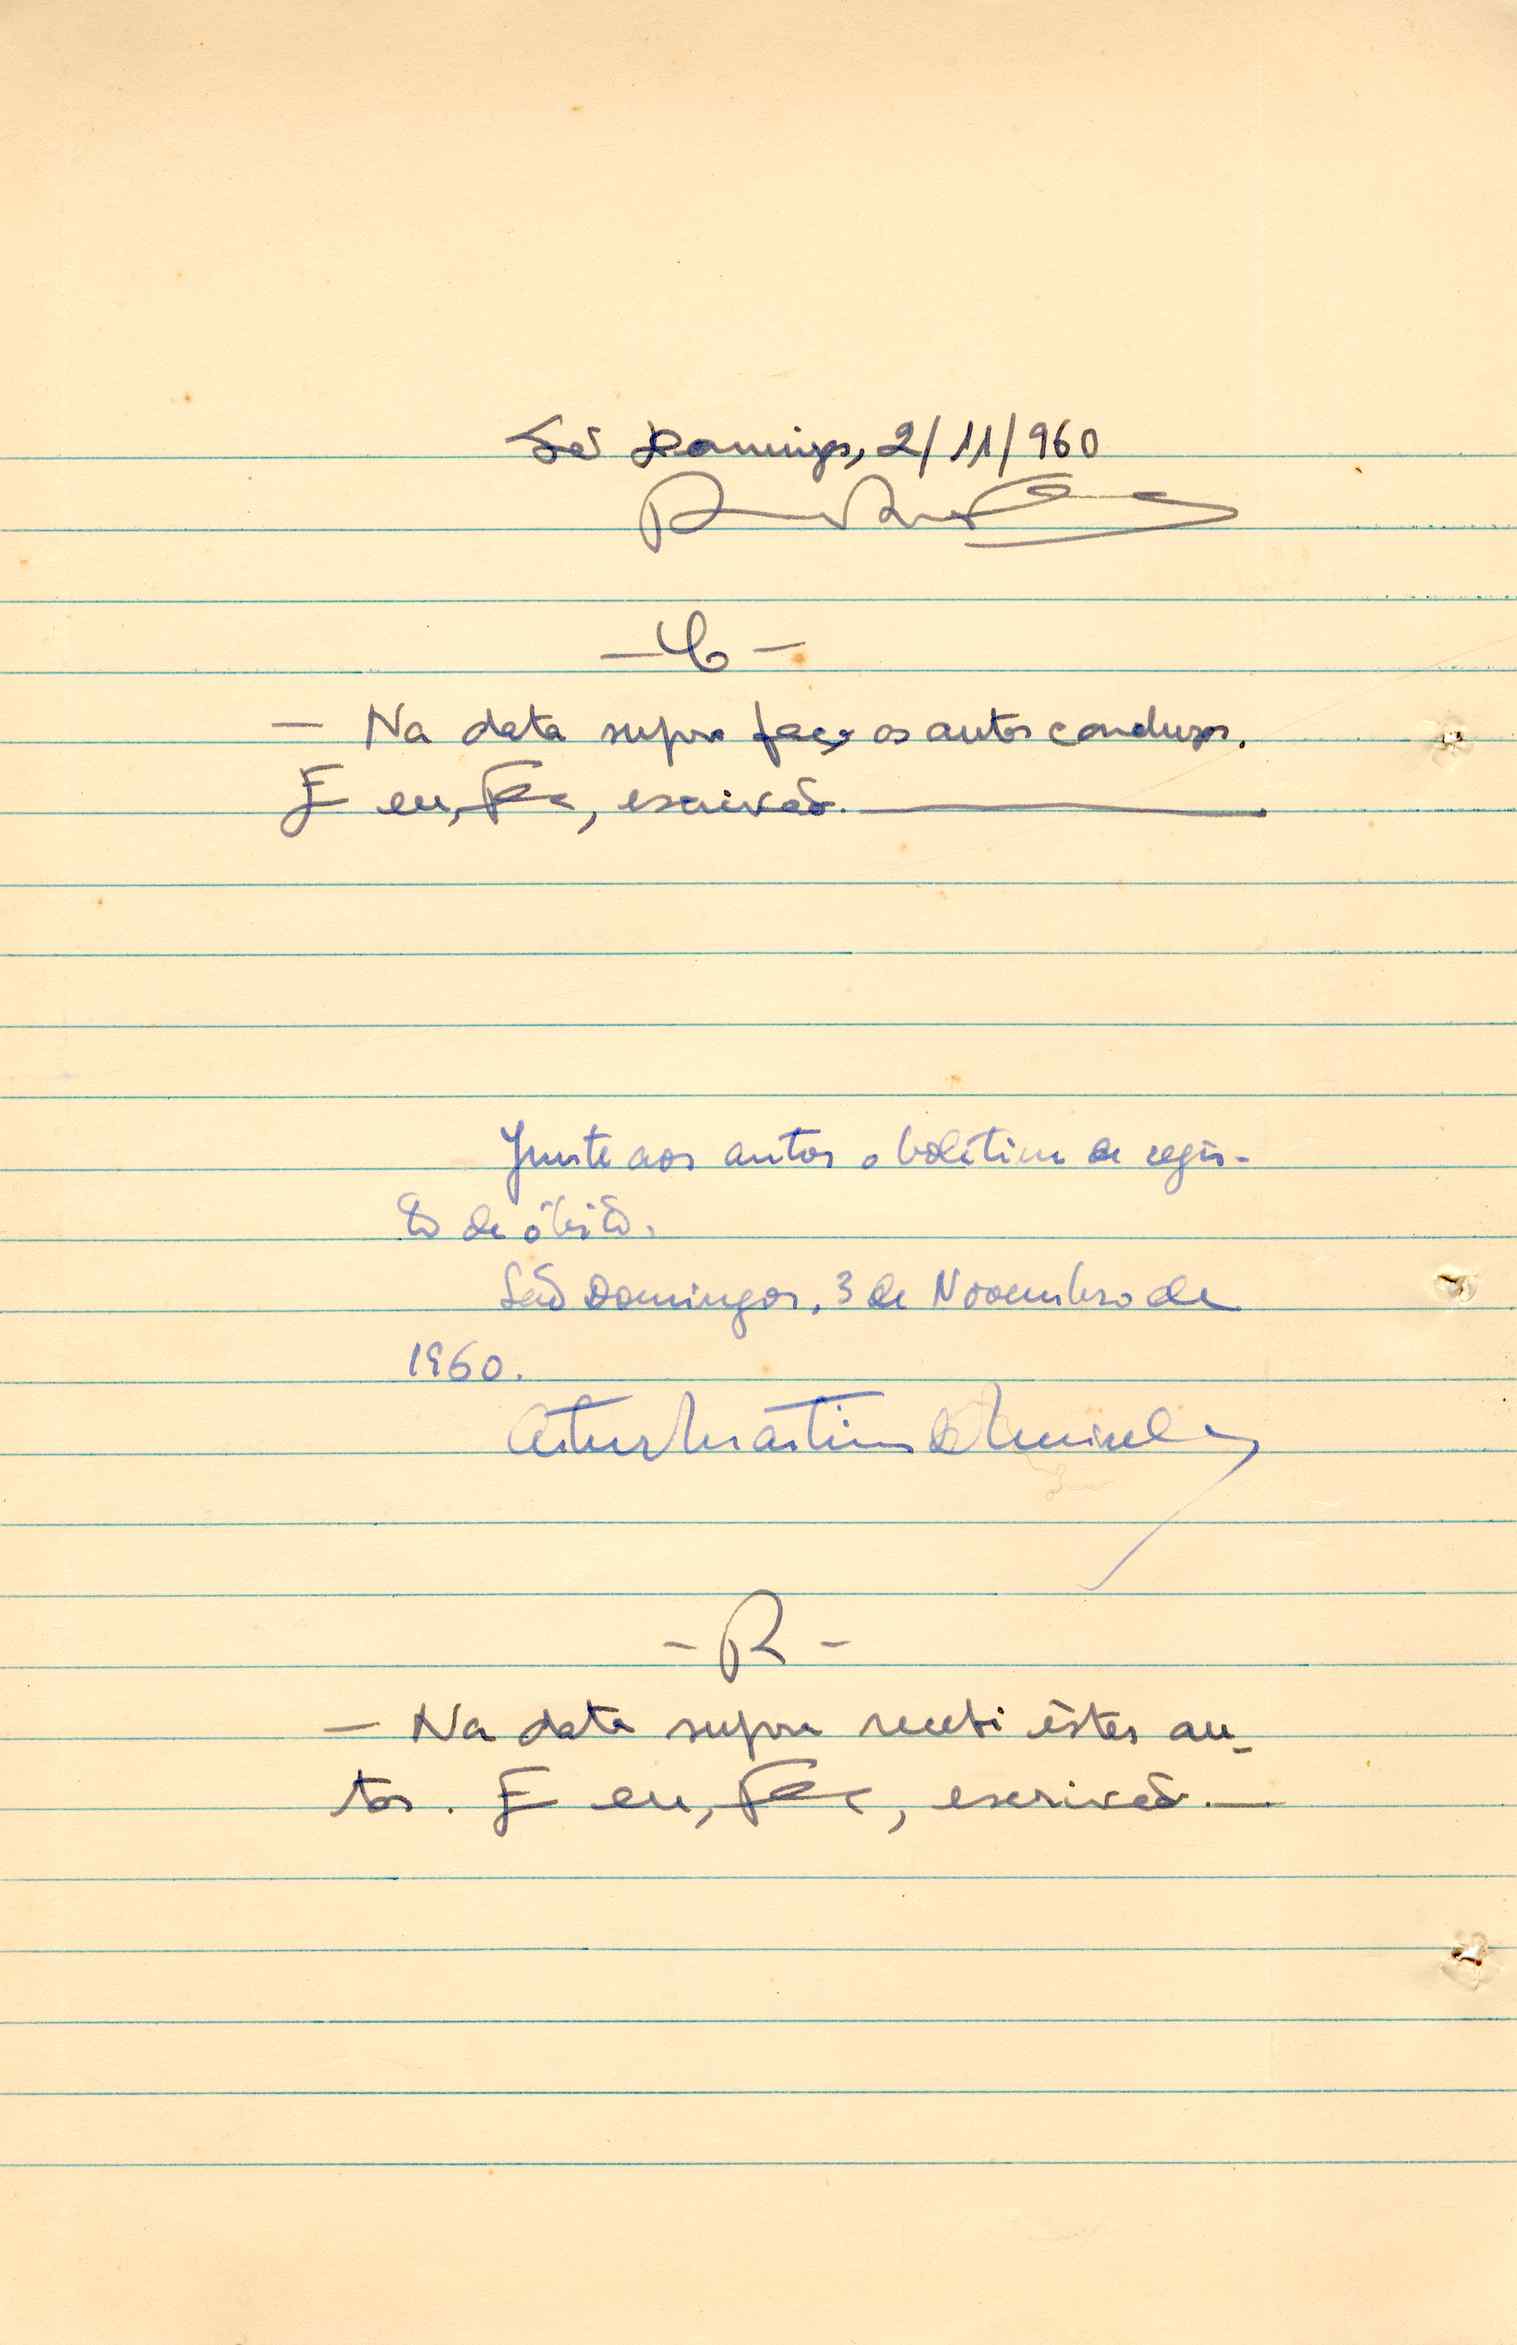 São Domingos, 2/11/960
— C —
— Na data supra faço os autos conclusos.
E eu, , escrivão.
Junte aos autos o boletim de regis-
to de óbito.
São Domingos, 3 de Novembro de
1960.
Artur Martins de Meireles
— R —
— Na data supra recebi êstes au-
tos. E eu, , escrivão.